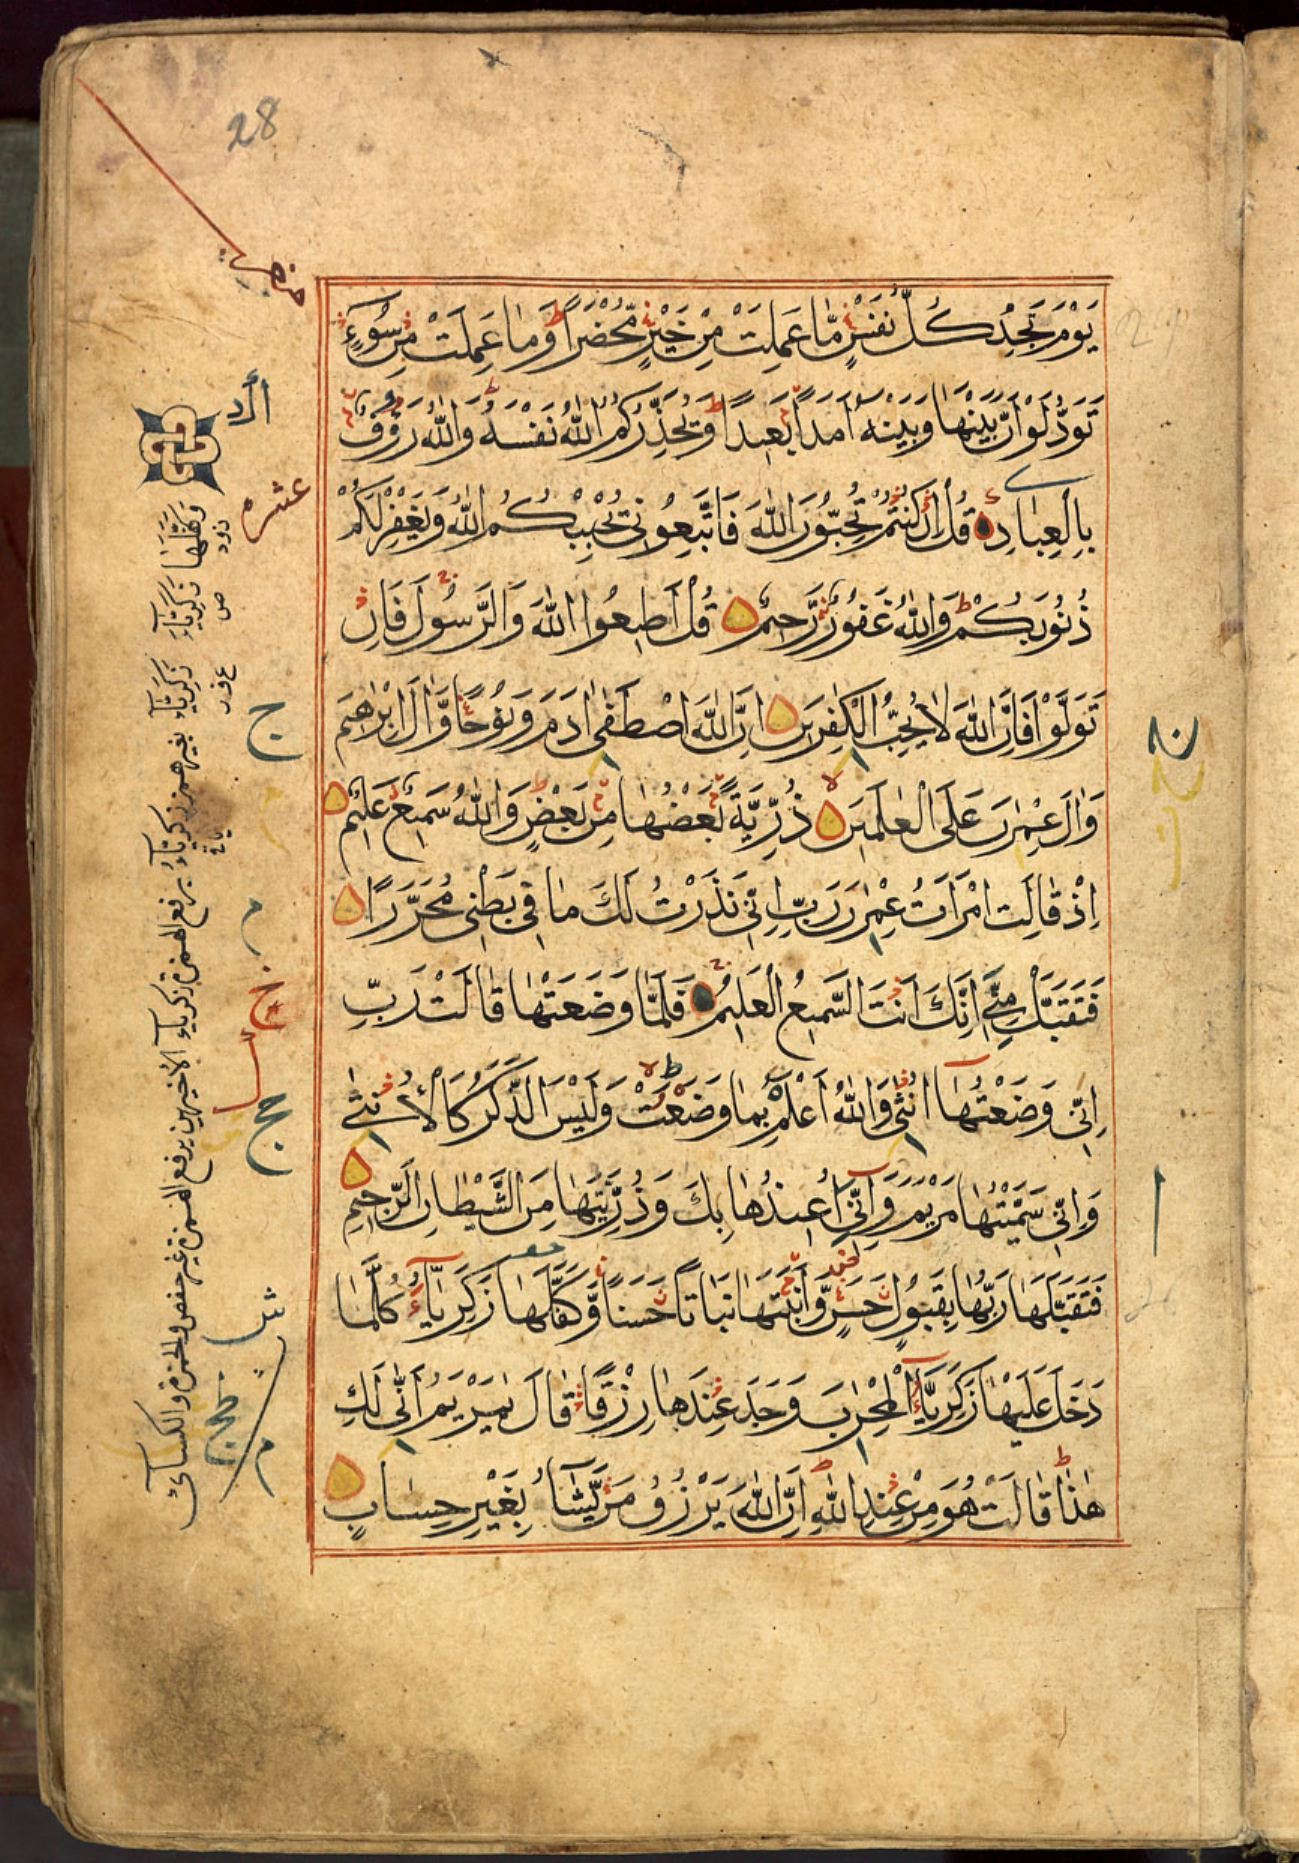 28
يَوْمَ تَجِدُ كُلُّ نَفْسٍ مَّا عَمِلَتْ مِنْ خَيْرٍ مُّحْضَرًا وَمَا عَمِلَتْ مِن سُوءٍ
تَوَدُّ لَوْ أَنَّ بَيْنَهَا وَبَيْنَهُ أَمَدًا بَعِيدًا وَيُحَذِّرُكُمُ اللَّهُ نَفْسَهُ وَاللَّهُ رَؤُفٌ
بِالْعِبَادِ قُلْ إِن كُنتُمْ تُحِبُّونَ اللَّهَ فَاتَّبِعُونِي يُحْبِبْكُمُ اللَّهُ وَيَغْفِرْ لَكُمْ
ذُنُوبَكُمْ وَاللَّهُ غَفُورٌ رَّحِيمٌ قُلْ أَطِيعُوا اللَّهَ وَالرَّسُولَ فَإِن
تَوَلَّوْا فَإِنَّ اللَّهَ لَا يُحِبُّ الْكٰفِرِينَ إِنَّ اللَّهَ اصْطَفَى اٰدَمَ وَنُوحًا وَّاٰلَ إِبْرٰهِيمَ
وَاٰلَ عِمْرٰنَ عَلَى الْعٰلَمِينَ ذُرِّيَّةً بَعْضُهَا مِن بَعْضٍ وَاللَّهُ سَمِيعٌ عَلِيمٌ
إِذْ قَالَتِ امْرَأَتُ عِمْرٰنَ رَبِّ إِنِّي نَذَرْتُ لَكَ مَا فِي بَطْنِي مُحَرَّرًا
فَتَقَبَّلْ مِنِّي إِنَّكَ أَنتَ السَّمِيعُ الْعَلِيمُ فَلَمَّا وَضَعَتْهَا قَالَتْ رَبِّ
إِنِّي وَضَعْتُهَا أُنثَى وَاللَّهُ أَعْلَمُ بِمَا وَضَعَتْ وَلَيْسَ الذَّكَرُ كَالْأُنثَى
وَإِنِّي سَمَّيْتُهَا مَرْيَمَ وَإِنِّي أُعِيذُهَا بِكَ وَذُرِّيَّتَهَا مِنَ الشَّيْطَانِ الرَّجِيمِ
فَتَقَبَّلَهَا رَبُّهَا بِقَبُولٍ حَسَنٍ وَّأَنبَتَهَا نَبَاتًا حَسَنًا وَّكَفَّلَهَا زَكَرِيَّاءُ كُلَّمَا
دَخَلَ عَلَيْهَا زَكَرِيَّاءُ الْمِحْرٰبَ وَجَدَ عِندَهَا رِزْقًا قَالَ يٰمَرْيَمُ أَنَّى لَكِ
هٰذَا قَالَتْ هُوَ مِنْ عِندِ اللَّهِ إِنَّ اللَّهَ يَرْزُقُ مَن يَّشَاءُ بِغَيْرِ حِسَابٍ
عشره
وَكَفَّلَهَا زَكَرِيَّاءَ زكرياء بغير همز زكرياء برفع الهمزة زكرياء الأخيرين برفع الهمزة غير حفص وحمزة والكسائي